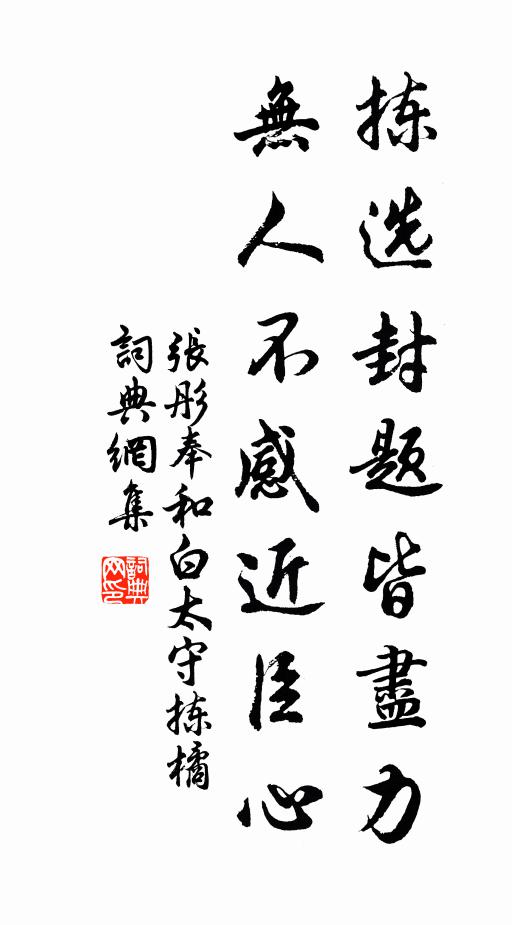 拣选封题皆盡力
無人不感近臣心
張彤奉和白太守拣橘
詞典網集
詞典网印